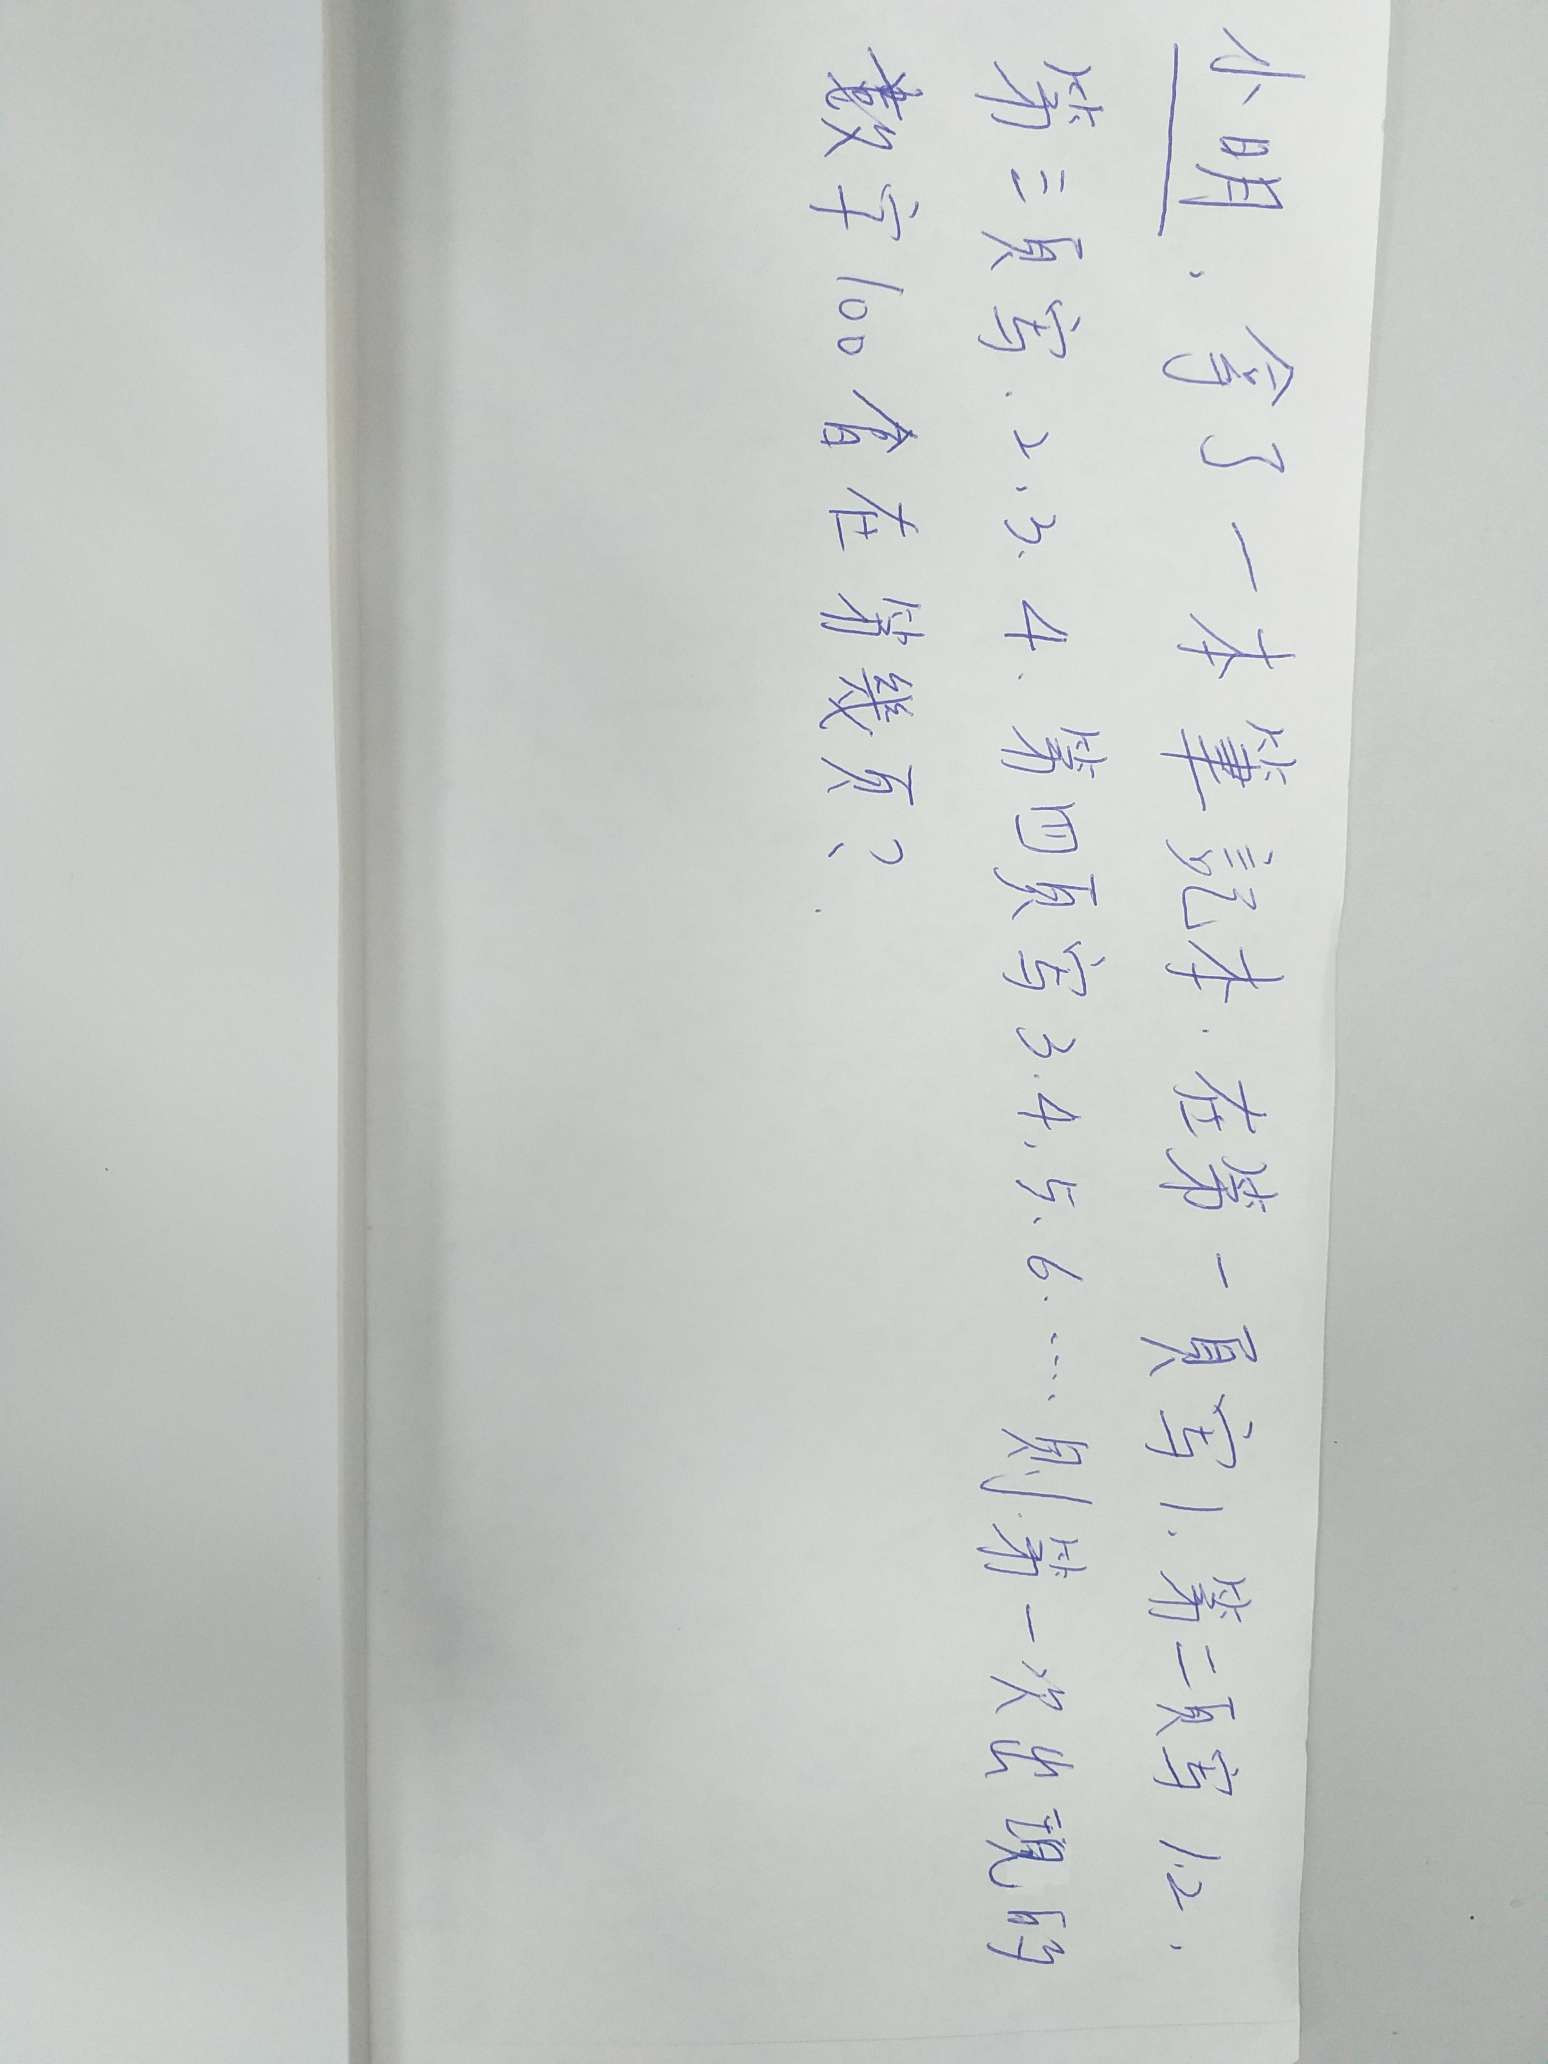 小明，拿了一本筆記本. 在第一頁寫1. 第二頁寫1.2.
第三頁寫. 2.3.4. 第四頁寫3.4.5.6.…則第一次出現的
數字100會在第幾頁？